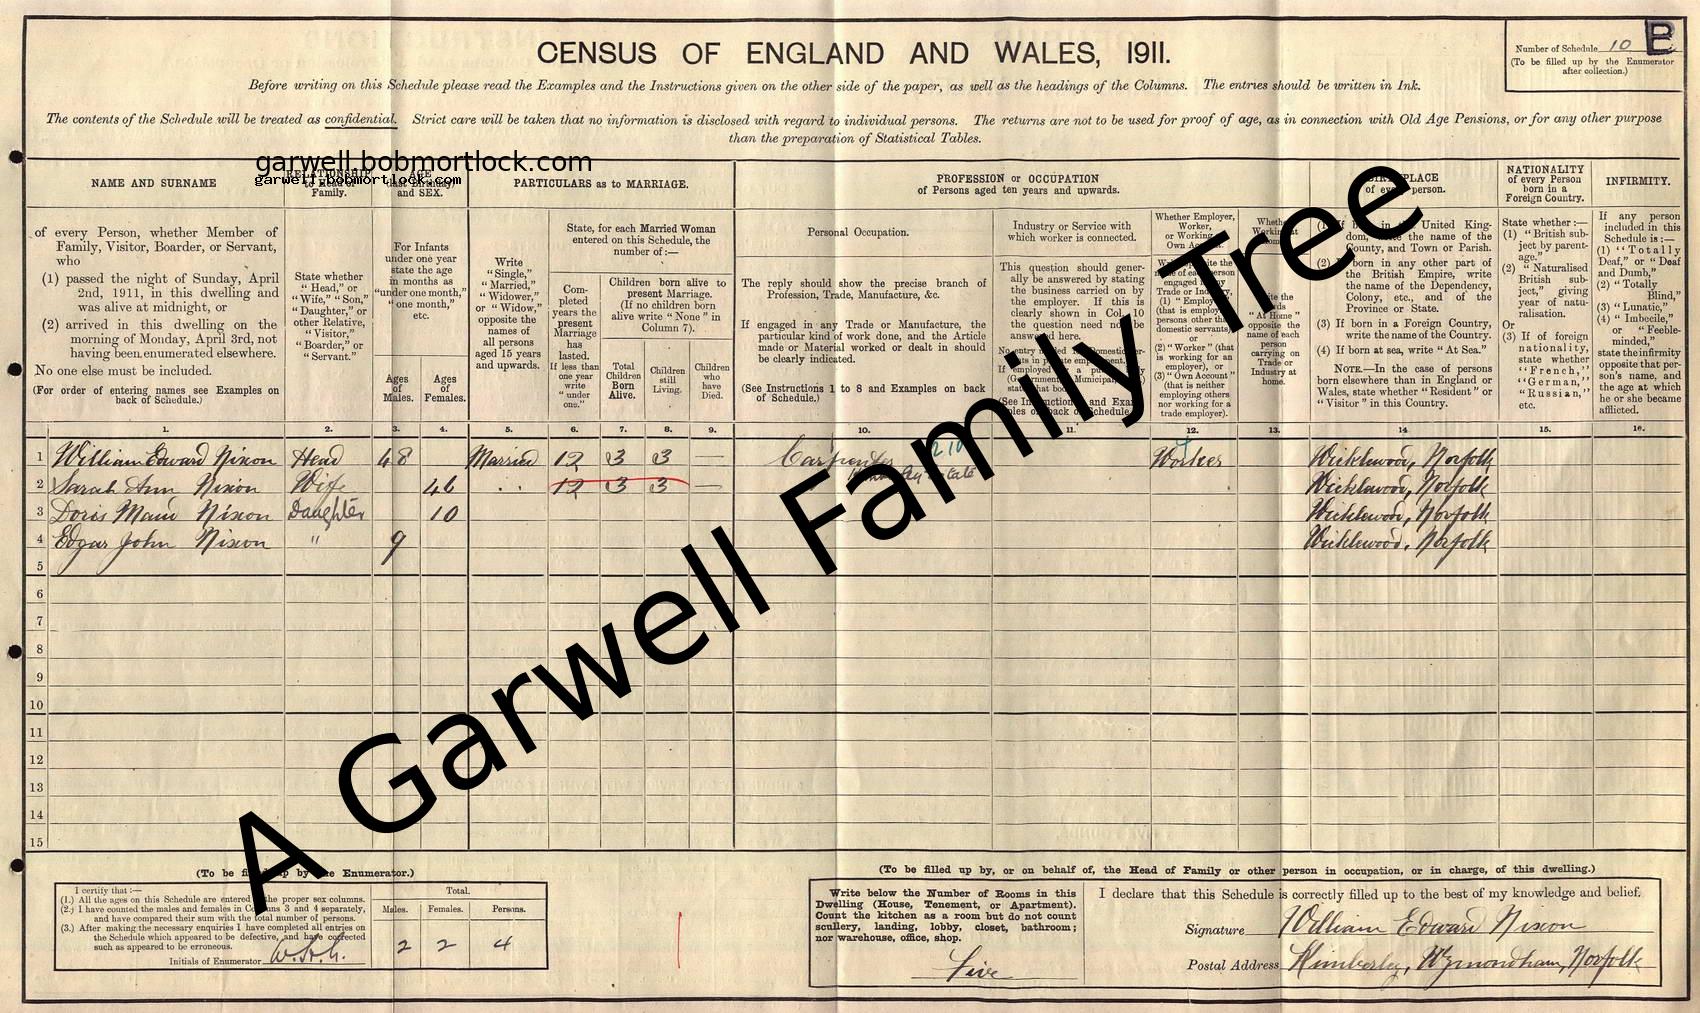 CENSUS OF ENGLAND AND WALES, 1911.
Number of Schedule 10
B
(To be filled up by the Enumerator
after collection.)
Before writing on this Schedule please read the Examples and the Instructions given on the other side of the paper, as well as the headings of the Columns. The entries should be written in Ink.
The contents of the Schedule will be treated as confidential. Strict care will be taken that no information is disclosed with regard to individual persons. The returns are not to be used for proof of age, as in connection with Old Age Pensions, or for any other purpose
than the preparation of Statistical Tables.
garwell.bobmortlock.com
garwell.bobmortlock.com
NAME AND SURNAME
of every Person, whether Member of
Family, Visitor, Boarder, or Servant,
who
(1) passed the night of Sunday, April
2nd, 1911, in this dwelling and
was alive at midnight, or
(2) arrived in this dwelling on the
morning of Monday, April 3rd, not
having been enumerated elsewhere.
No one else must be included.
(For order of entering names see Examples on
back of Schedule.)
RELATIONSHIP
to Head of
Family.
State whether
"Head," or
"Wife," "Son,"
"Daughter," or
other Relative,
"Visitor,"
"Boarder," or
"Servant."
AGE
(last Birthday)
and SEX.
For Infants
under one year
state the age
in months as
"under one month,"
"one month,"
etc.
Ages
of
Males.
Ages
of
Females.
PARTICULARS as to MARRIAGE.
Write
"Single,"
"Married,"
"Widower,"
or "Widow,"
opposite the
names of
all persons
aged 15 years
and upwards.
State, for each Married Woman
entered on this Schedule, the
number of:—
Completed
years the
present
Marriage
has
lasted.
If less than
one year
write
"under
one."
Children born alive to
present Marriage.
(If no children born
alive write "None" in
Column 7).
Total
Children
Born
Alive.
Children
still
Living.
Children
who
have
Died.
PROFESSION or OCCUPATION
of Persons aged ten years and upwards.
Personal Occupation.
The reply should show the precise branch of
Profession, Trade, Manufacture, &c.
If engaged in any Trade or Manufacture, the
particular kind of work done, and the Article
made or Material worked or dealt in should
be clearly indicated.
(See Instructions 1 to 8 and Examples on back
of Schedule.)
Industry or Service with
which worker is connected.
This question should gener-
ally be answered by stating
the business carried on by
the employer. If this is
clearly shown in Col. 10
the question need not be
answered here.
Whether Employer,
Worker,
or Working on
Own Account.
(1) "Employer"
(that is employing
persons other than
domestic servants),
or
(2) "Worker" (that
is working for an
employer), or
(3) "Own Account"
(that is neither
employing others
nor working for a
trade employer).
Write the
words
"At Home"
opposite the
name of each
person
carrying on
Trade or
Industry at
home.
BIRTHPLACE
of every person.
(1) If born in the United King-
dom, write the name of the
County, and Town or Parish.
(2) If born in any other part of
the British Empire, write
the name of the Dependency,
Colony, etc., and of the
Province or State.
(3) If born in a Foreign Country,
write the name of the Country.
(4) If born at sea, write "At Sea."
NOTE.—In the case of persons
born elsewhere than in England or
Wales, state whether "Resident" or
"Visitor" in this Country.
NATIONALITY
of every Person
born in a
Foreign Country.
State whether:—
(1) "British sub-
ject by parent-
age."
(2) "Naturalised
British sub-
ject," giving
year of natu-
ralisation.
Or
(3) If of foreign
nationality,
state whether
"French,"
"German,"
"Russian,"
etc.
INFIRMITY.
If any person
included in this
Schedule is:—
(1) "Totally
Deaf," or "Deaf
and Dumb,"
(2) "Totally
Blind,"
(3) "Lunatic,"
(4) "Imbecile,"
or "Feeble-
minded,"
state the infirmity
opposite that per-
son's name, and
the age at which
he or she became
afflicted.
1. 2. 3. 4. 5. 6. 7. 8. 9. 10. 11. 12. 13. 14 15. 16.
1 William Edward Nixon Head 48 Married 12 3 3 — Carpenter 210 Worker Wicklewood, Norfolk
2 Sarah Ann Nixon Wife 46 " 12 3 3 — Wicklewood, Norfolk
3 Doris Maud Nixon Daughter 10 Wicklewood, Norfolk
4 Edgar John Nixon " 9 Wicklewood, Norfolk
5
6
7
8
9
10
11
12
13
14
15
A Garwell Family Tree
(To be filled up by the Enumerator.)
I certify that:—
(1.) All the ages on this Schedule are entered in the proper sex columns.
(2.) I have counted the males and females in Columns 3 and 4 separately,
and have compared their sum with the total number of persons.
(3.) After making the necessary enquiries I have completed all entries on
the Schedule which appeared to be defective, and have corrected
such as appeared to be erroneous.
Initials of Enumerator
Total.
Males. Females. Persons.
2 2 4
(To be filled up by, or on behalf of, the Head of Family or other person in occupation, or in charge, of this dwelling.)
Write below the Number of Rooms in this
Dwelling (House, Tenement, or Apartment).
Count the kitchen as a room but do not count
scullery, landing, lobby, closet, bathroom;
nor warehouse, office, shop.
Five
I declare that this Schedule is correctly filled up to the best of my knowledge and belief.
Signature William Edward Nixon
Postal Address Kimberley, Wymondham, Norfolk